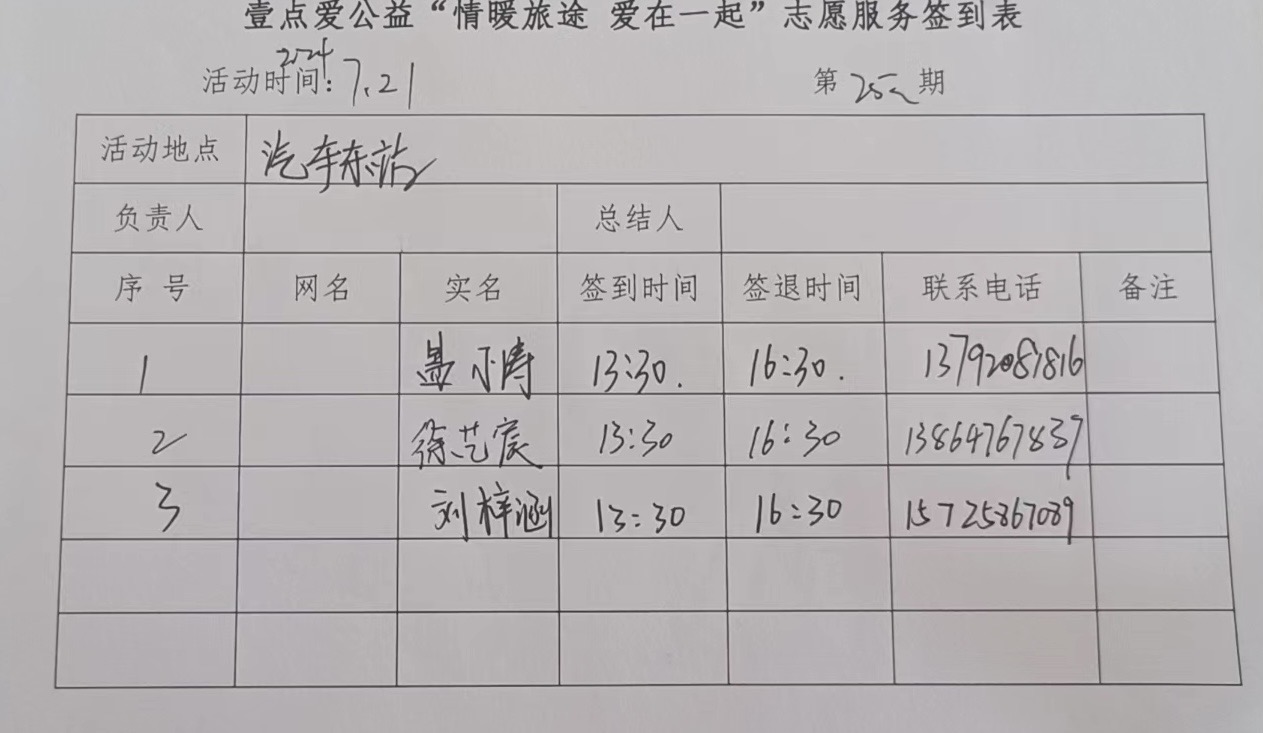 壹点爱公益“情暖旅途 爱在一起”志愿服务签到表
2024
活动时间:7.21 第252期
活动地点 汽车东站
负责人 总结人
序号 网名 实名 签到时间 签退时间 联系电话 备注
1 小涛 13:30. 16:30. 13792081816
2 徐艺宸 13:30 16:30 13864767837
3 刘梓涵 13:30 16:30 15725867089